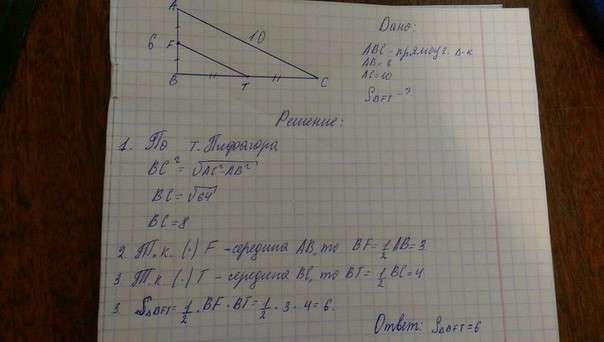 A
6 F 10
B T C
Дано:
ABC - прямоуг. Δ-к
AB = 6
AC = 10
S BFT - ?
Решение:
1. По т. Пифагора
BC² = √AC² - AB²
BC = √64
BC = 8
2 Т.к. (·) F - середина AB, то BF = 1/2 AB = 3
3 Т.к (·) T - середина BC, то BT = 1/2 BC = 4
3. SΔBFT = 1/2 · BF · BT = 1/2 · 3 · 4 = 6.
Ответ: SΔBFT = 6